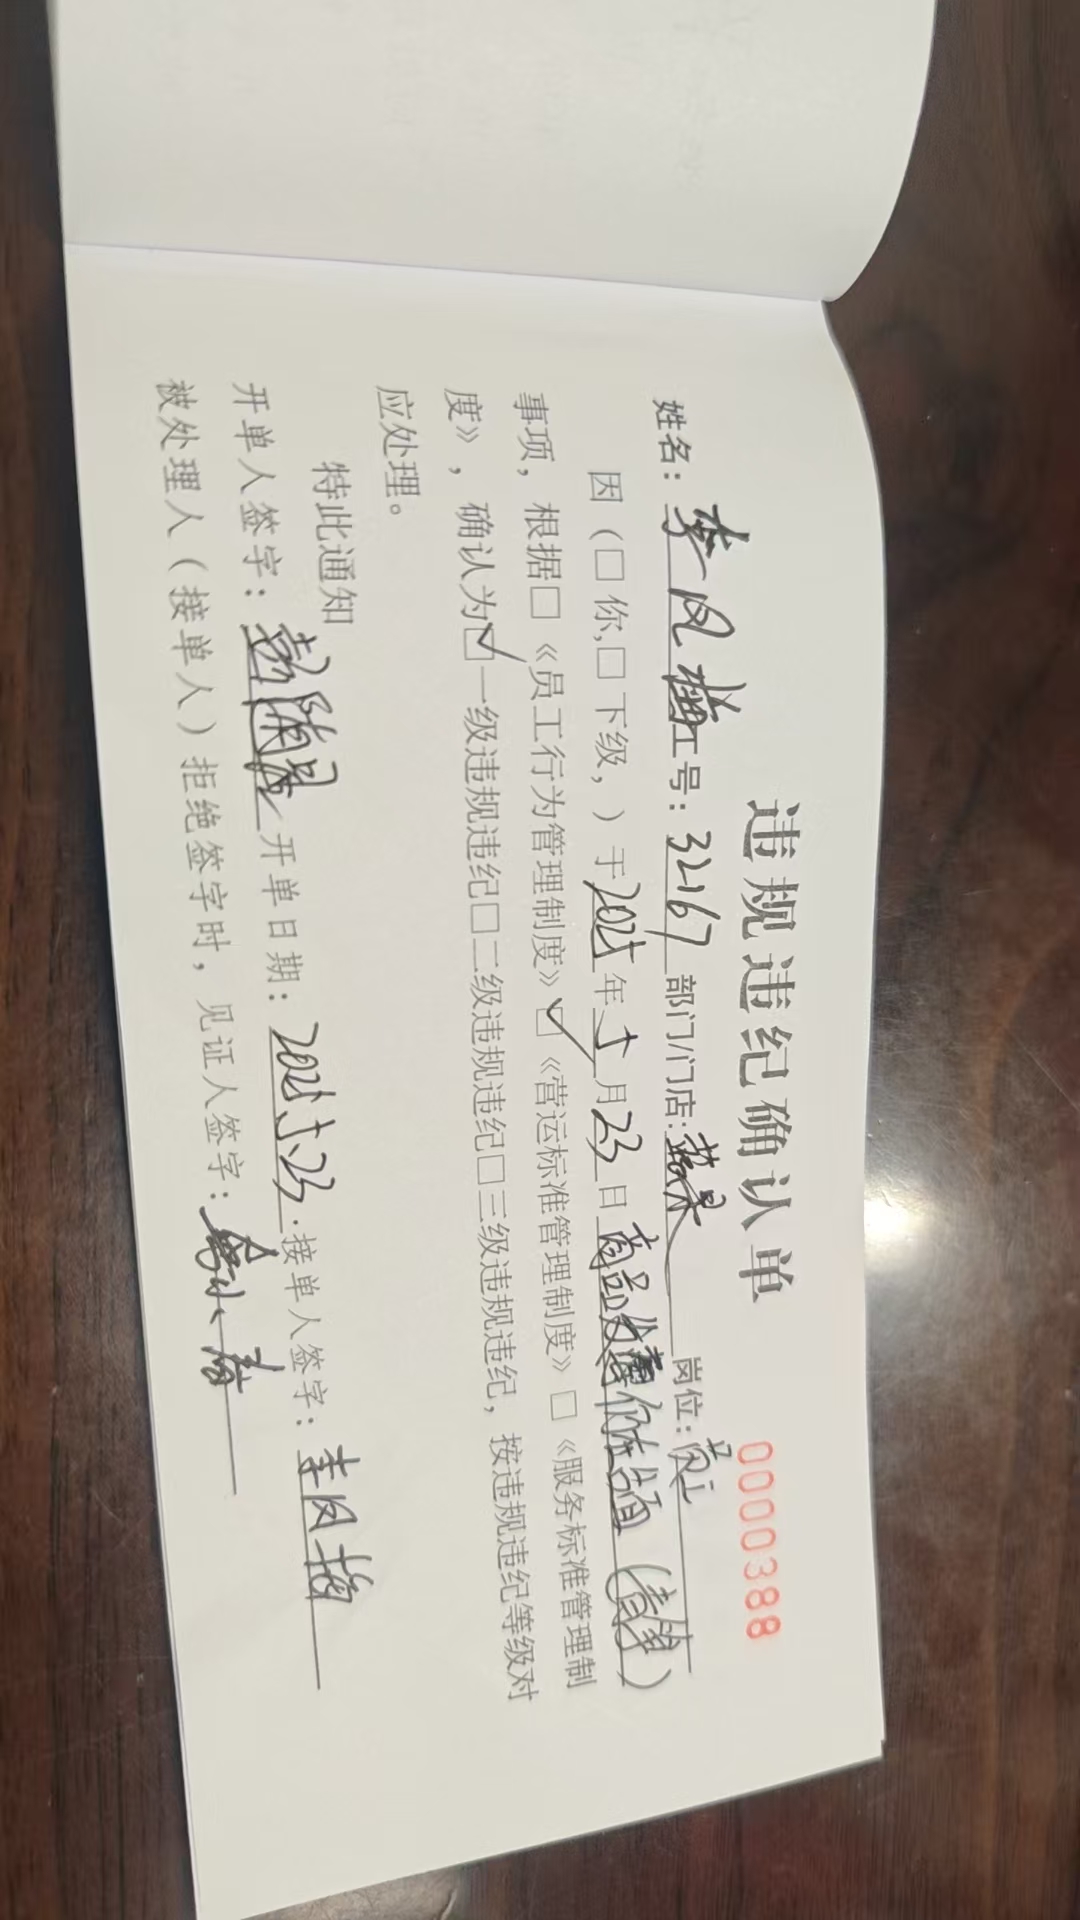 违规违纪确认单 0000388
姓名：李凤梅 工号：3267 部门/门店： 岗位：员工
因（□你,□下级，）于2025年十月23日商品 （ ）
事项，根据□《员工行为管理制度》☑《营运标准管理制度》□《服务标准管理制
度》，确认为☑一级违规违纪□二级违规违纪□三级违规违纪，按违规违纪等级对
应处理。
特此通知
开单人签字： 开单日期：2025.十.23. 接单人签字：李凤梅
被处理人（接单人）拒绝签字时，见证人签字：